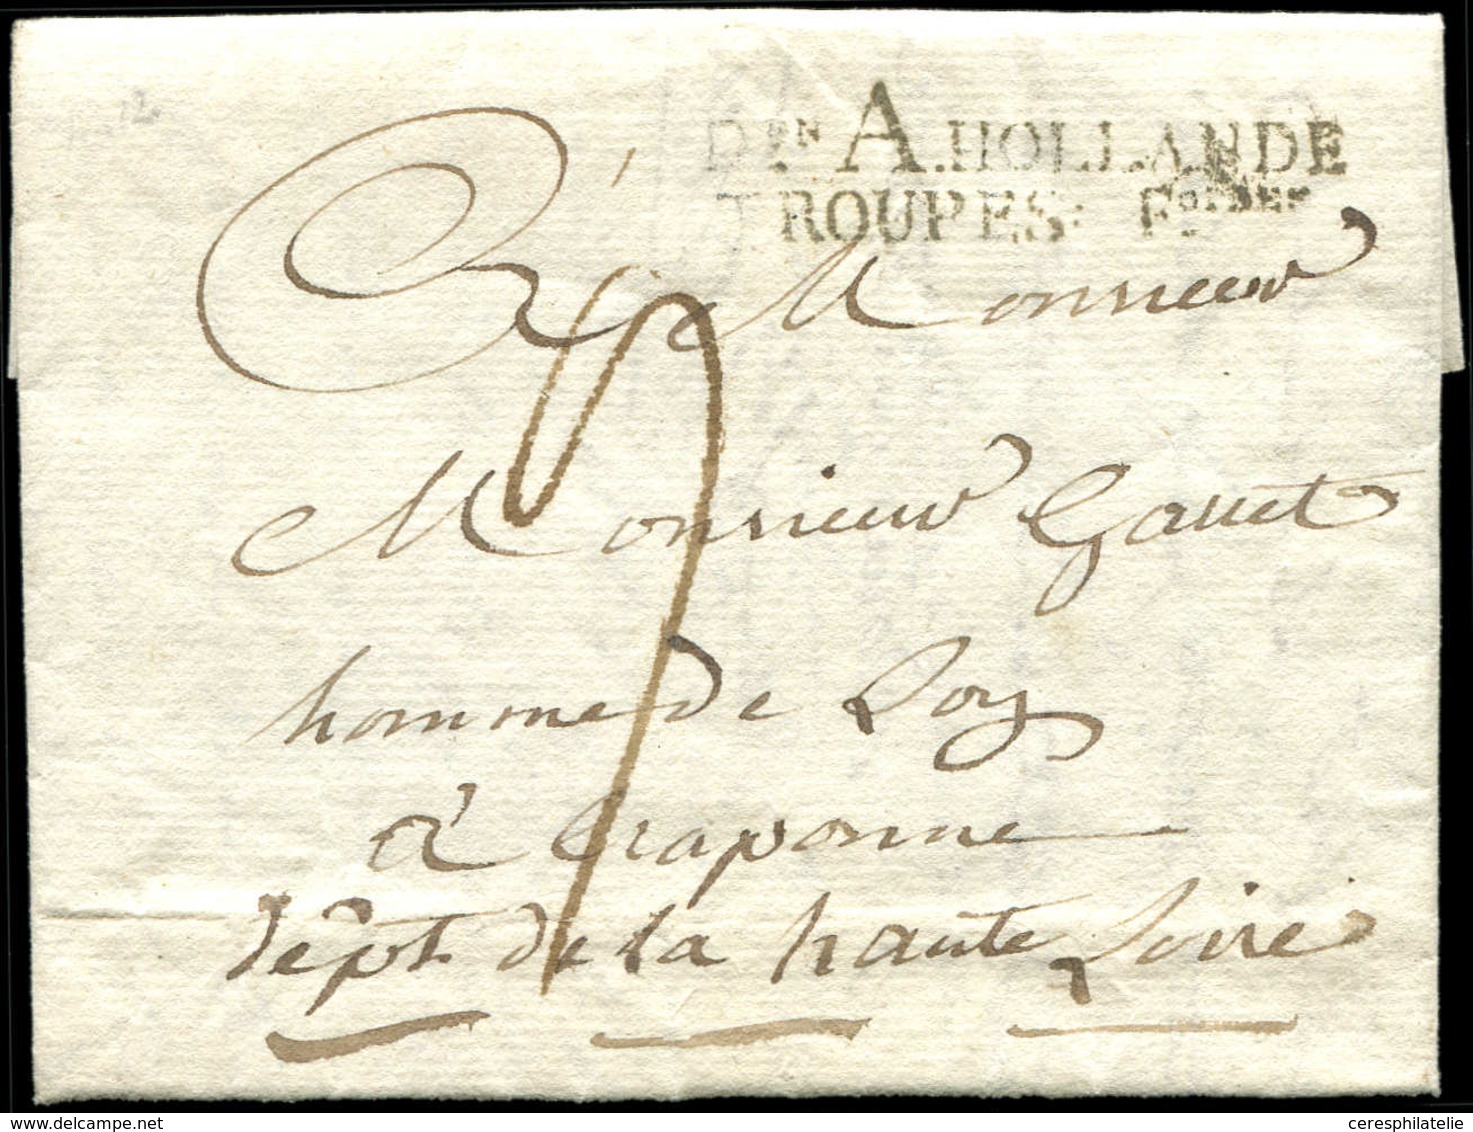 12
DON A.HOLLANDE
TROUPES. Foises
A Monsieur
Monsieur Garret
homme de Loy
à Craponne
dépt. de la haute Loire
ceresphilatelie